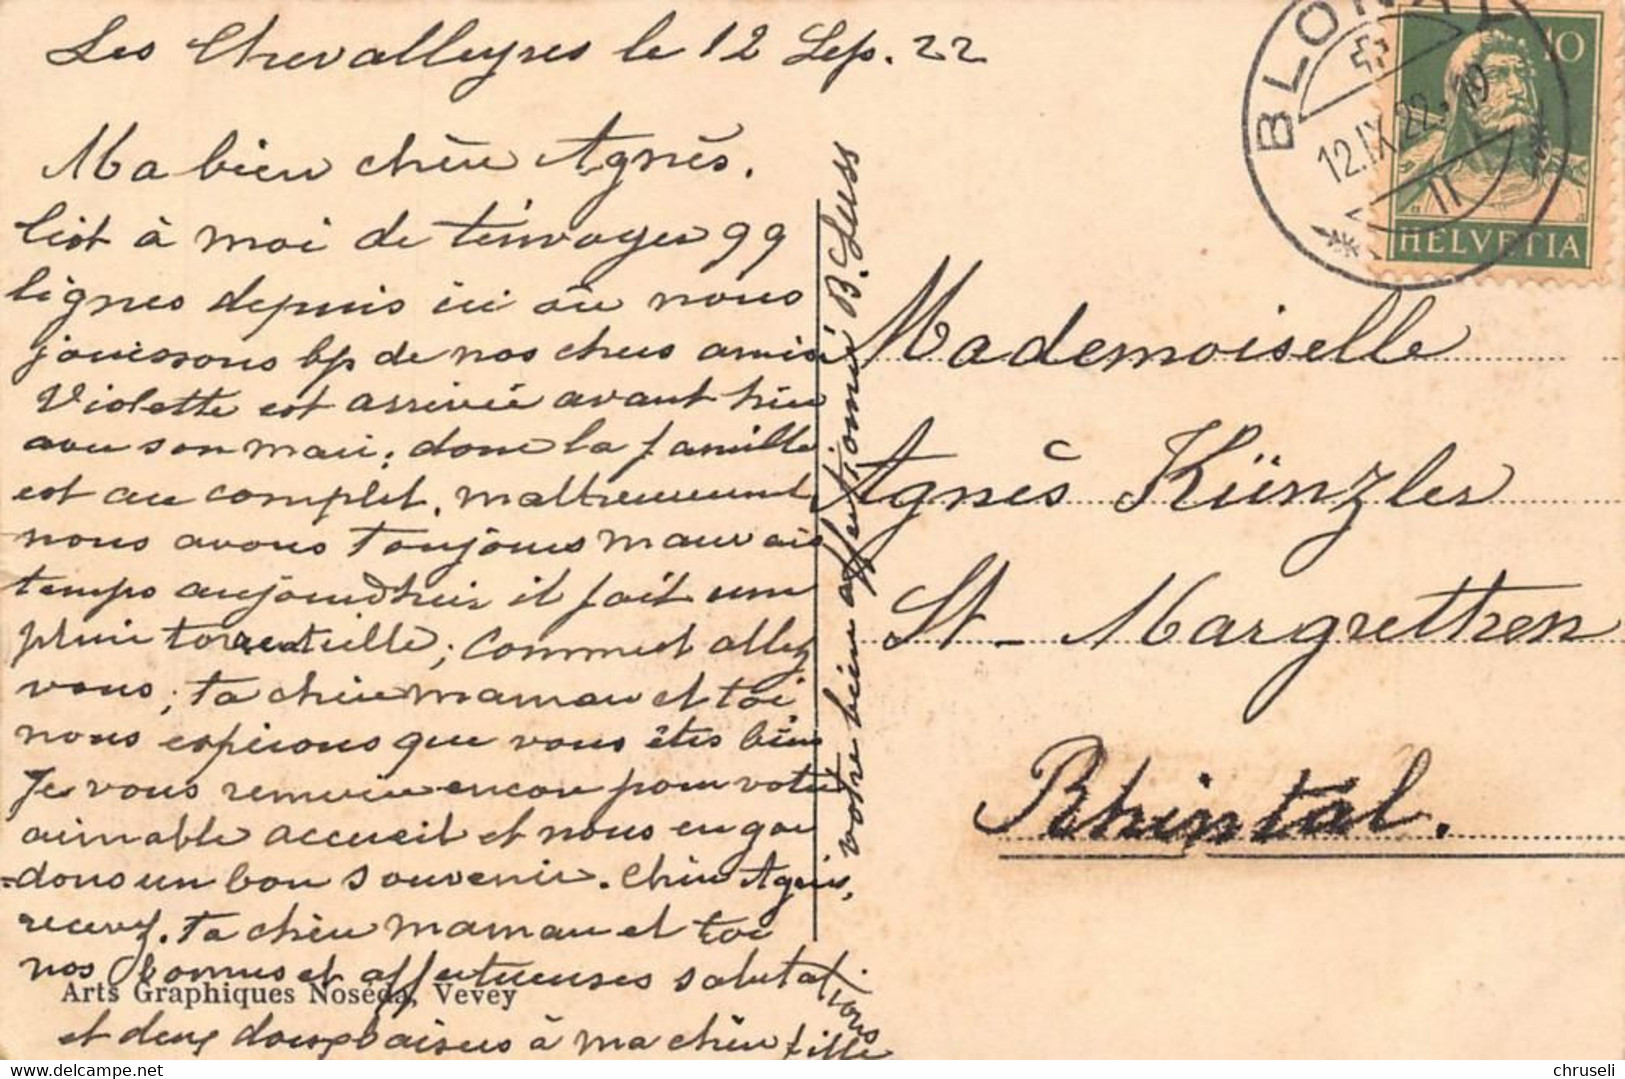 Les Chevalleyres le 12 Sep. 22
Ma bien chère Agnès.
C'est à moi de t'envoyer qq
lignes depuis ici où nous
jouissons bp de nos chers amis
Violette est arrivée avant hier
avec son mari; donc la famille
est au complet. malheureusement
nous avons toujours mauvais
temps aujourd'hui il fait une
pluie torrentielle; Comment allez
vous; ta chère maman et toi
nous espérons que vous êtes bien
Je vous remercie encore pour votre
aimable accueil et nous en gar
dons un bon souvenir. Chère Agnès,
recevez. ta chère maman et toi
nos bonnes et affectueuses salutations
et deux doux baisers à ma chère fille
votre bien affectionné B.
Arts Graphiques Noséda, Vevey
BLONAY
12.IX.22.-19
II
10
HELVETIA
Mademoiselle
Agnès Künzler
St-Margrethen
Rhintal.
chruseli
delcampe.net